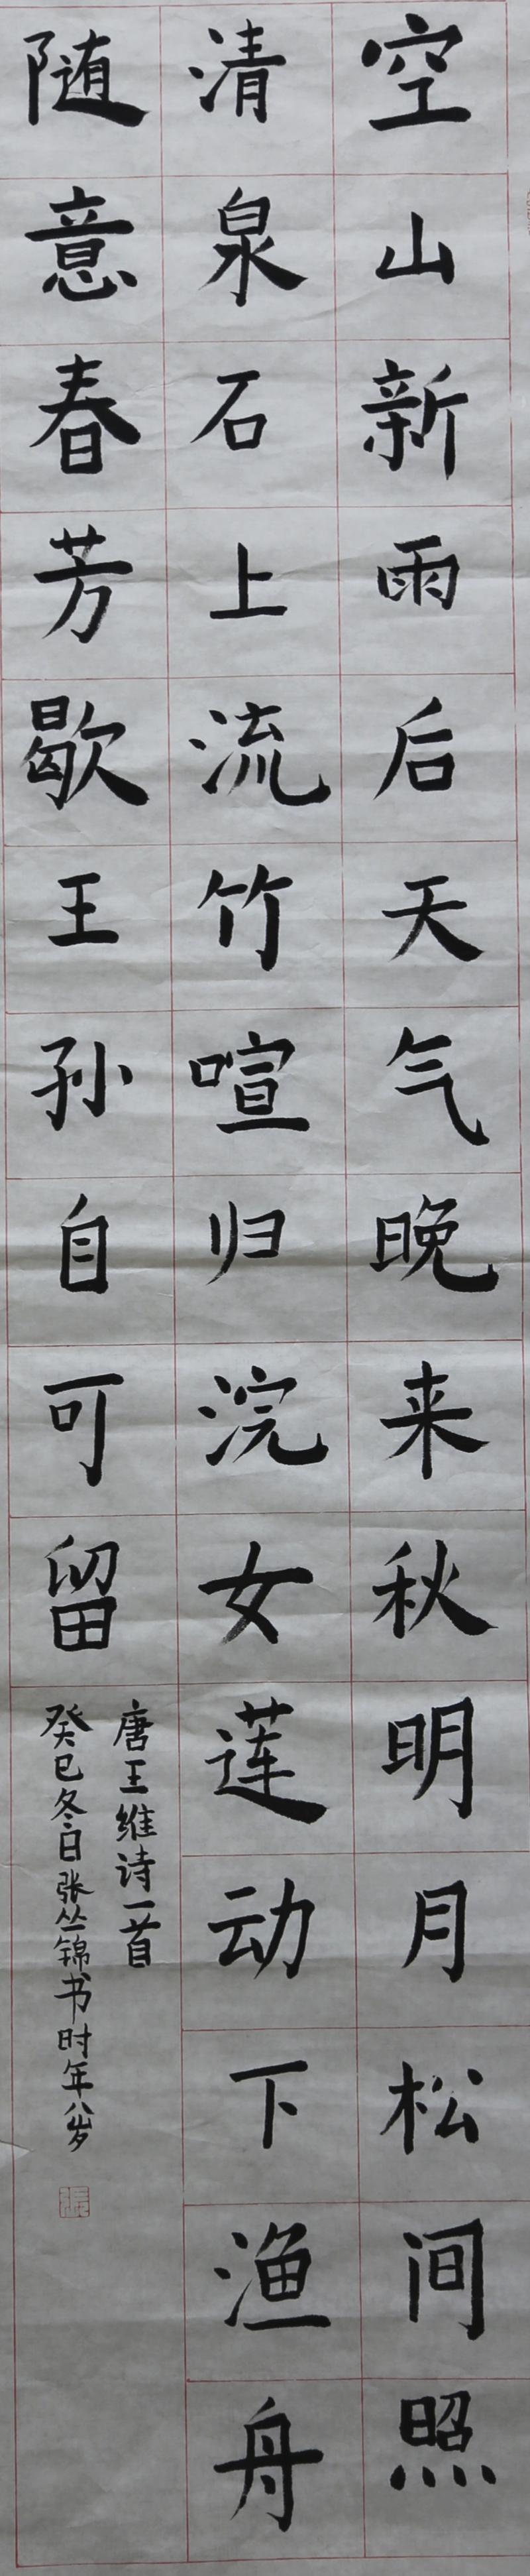 空山新雨后天气晚来秋明月松间照
清泉石上流竹喧归浣女莲动下渔舟
随意春芳歇王孙自可留
唐王维诗一首
癸巳冬日张丛锦书时年八岁